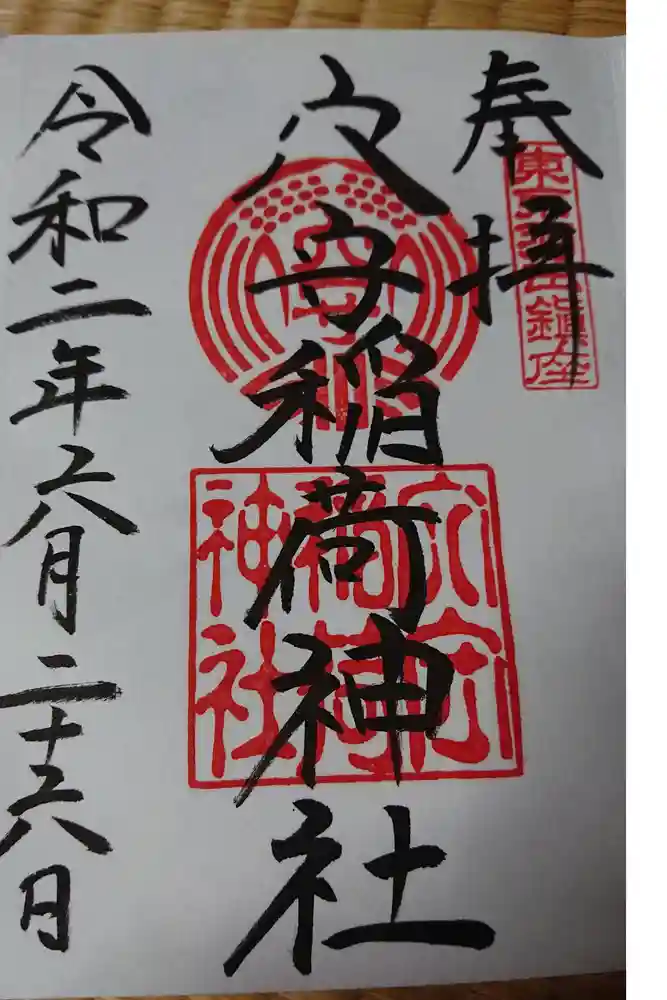 奉拝
東京羽田鎮座
穴守稲荷神社
穴守
稲荷
神社
令和二年六月二十六日